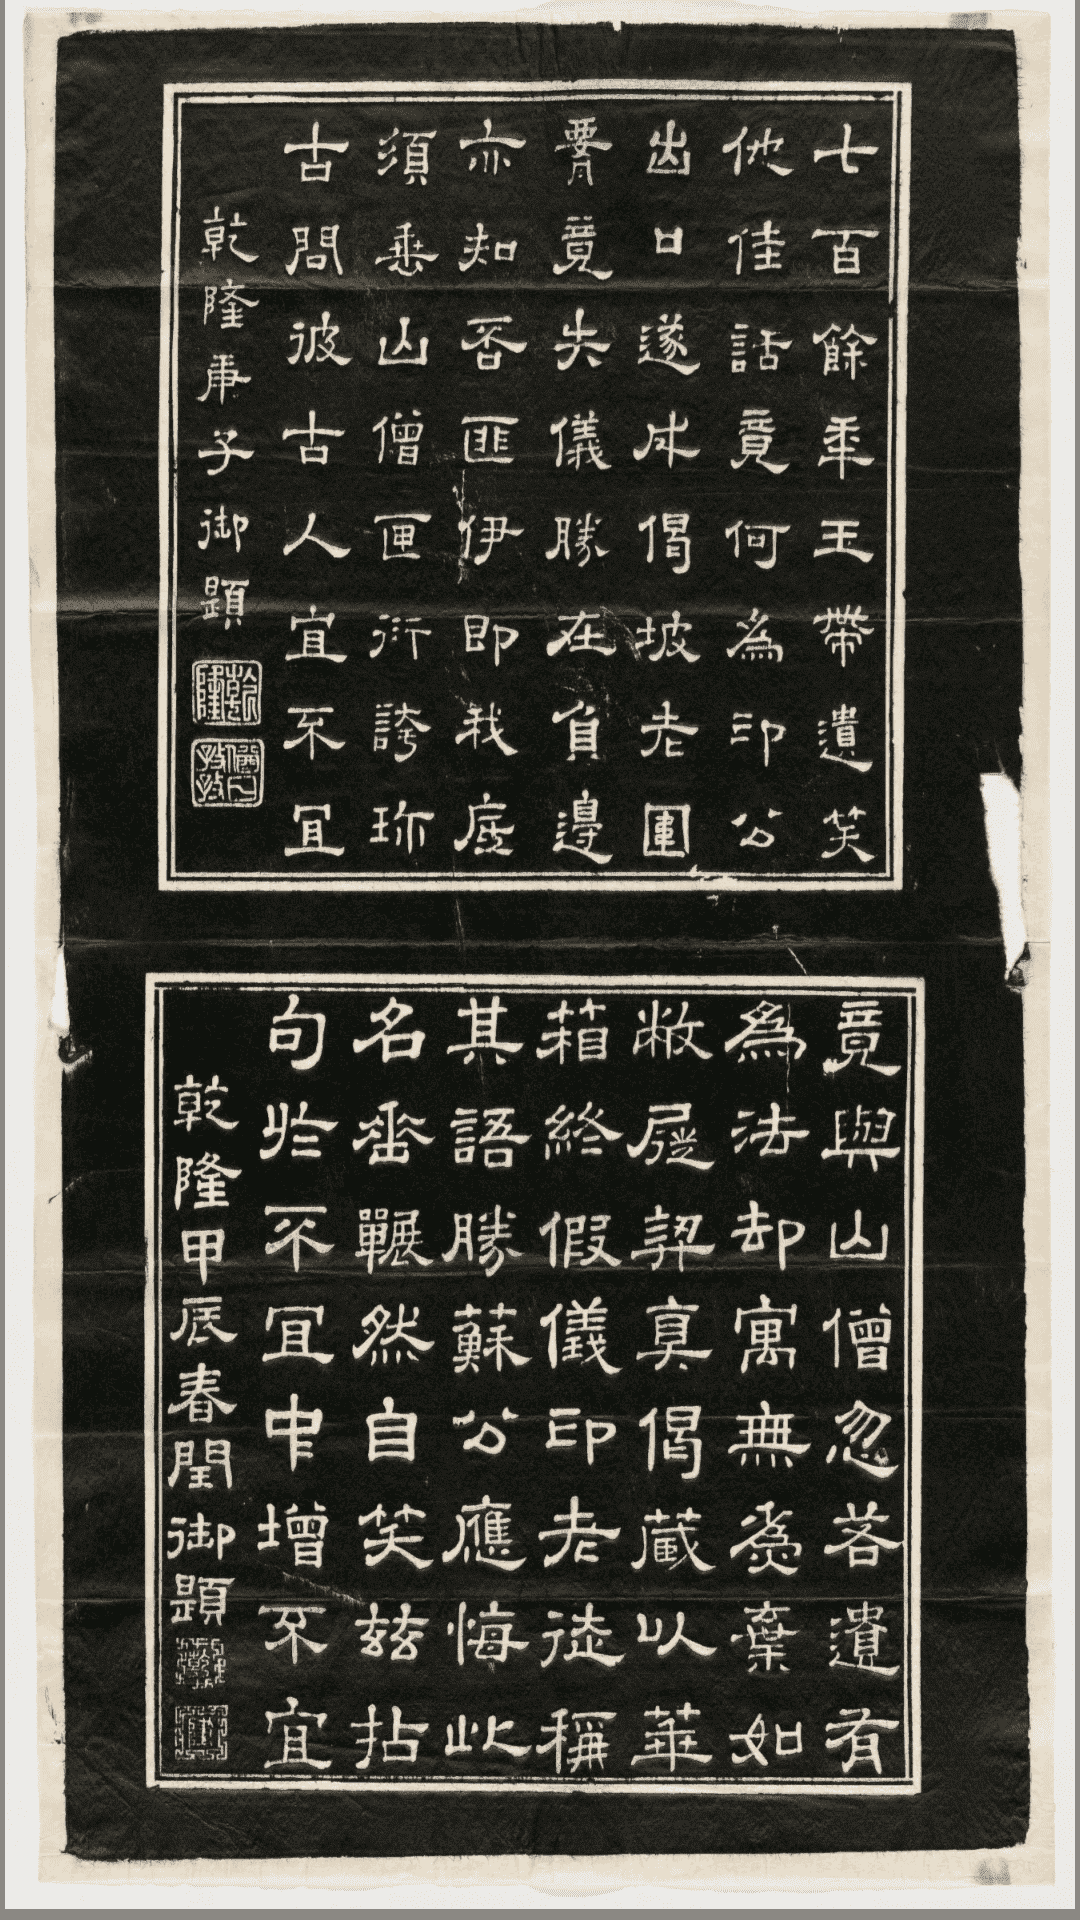 七百餘年玉帶遺笑
他佳話竟何為印公
出口遂成偈坡老圍
腰竟失儀勝在負邊
亦知否匪伊即我底
須垂山僧匣衍誇珎
古問彼古人宜不宜
乾隆庚子御題
乾隆
猶日孜孜
竟與山僧忽若遺有
為法却寓無為棄如
敝屣契真偈藏以華
箱終假儀印老徒稱
其語勝蘇公應悔此
名垂囅然自笑玆拈
句於不宜中增不宜
乾隆甲辰春閏御題